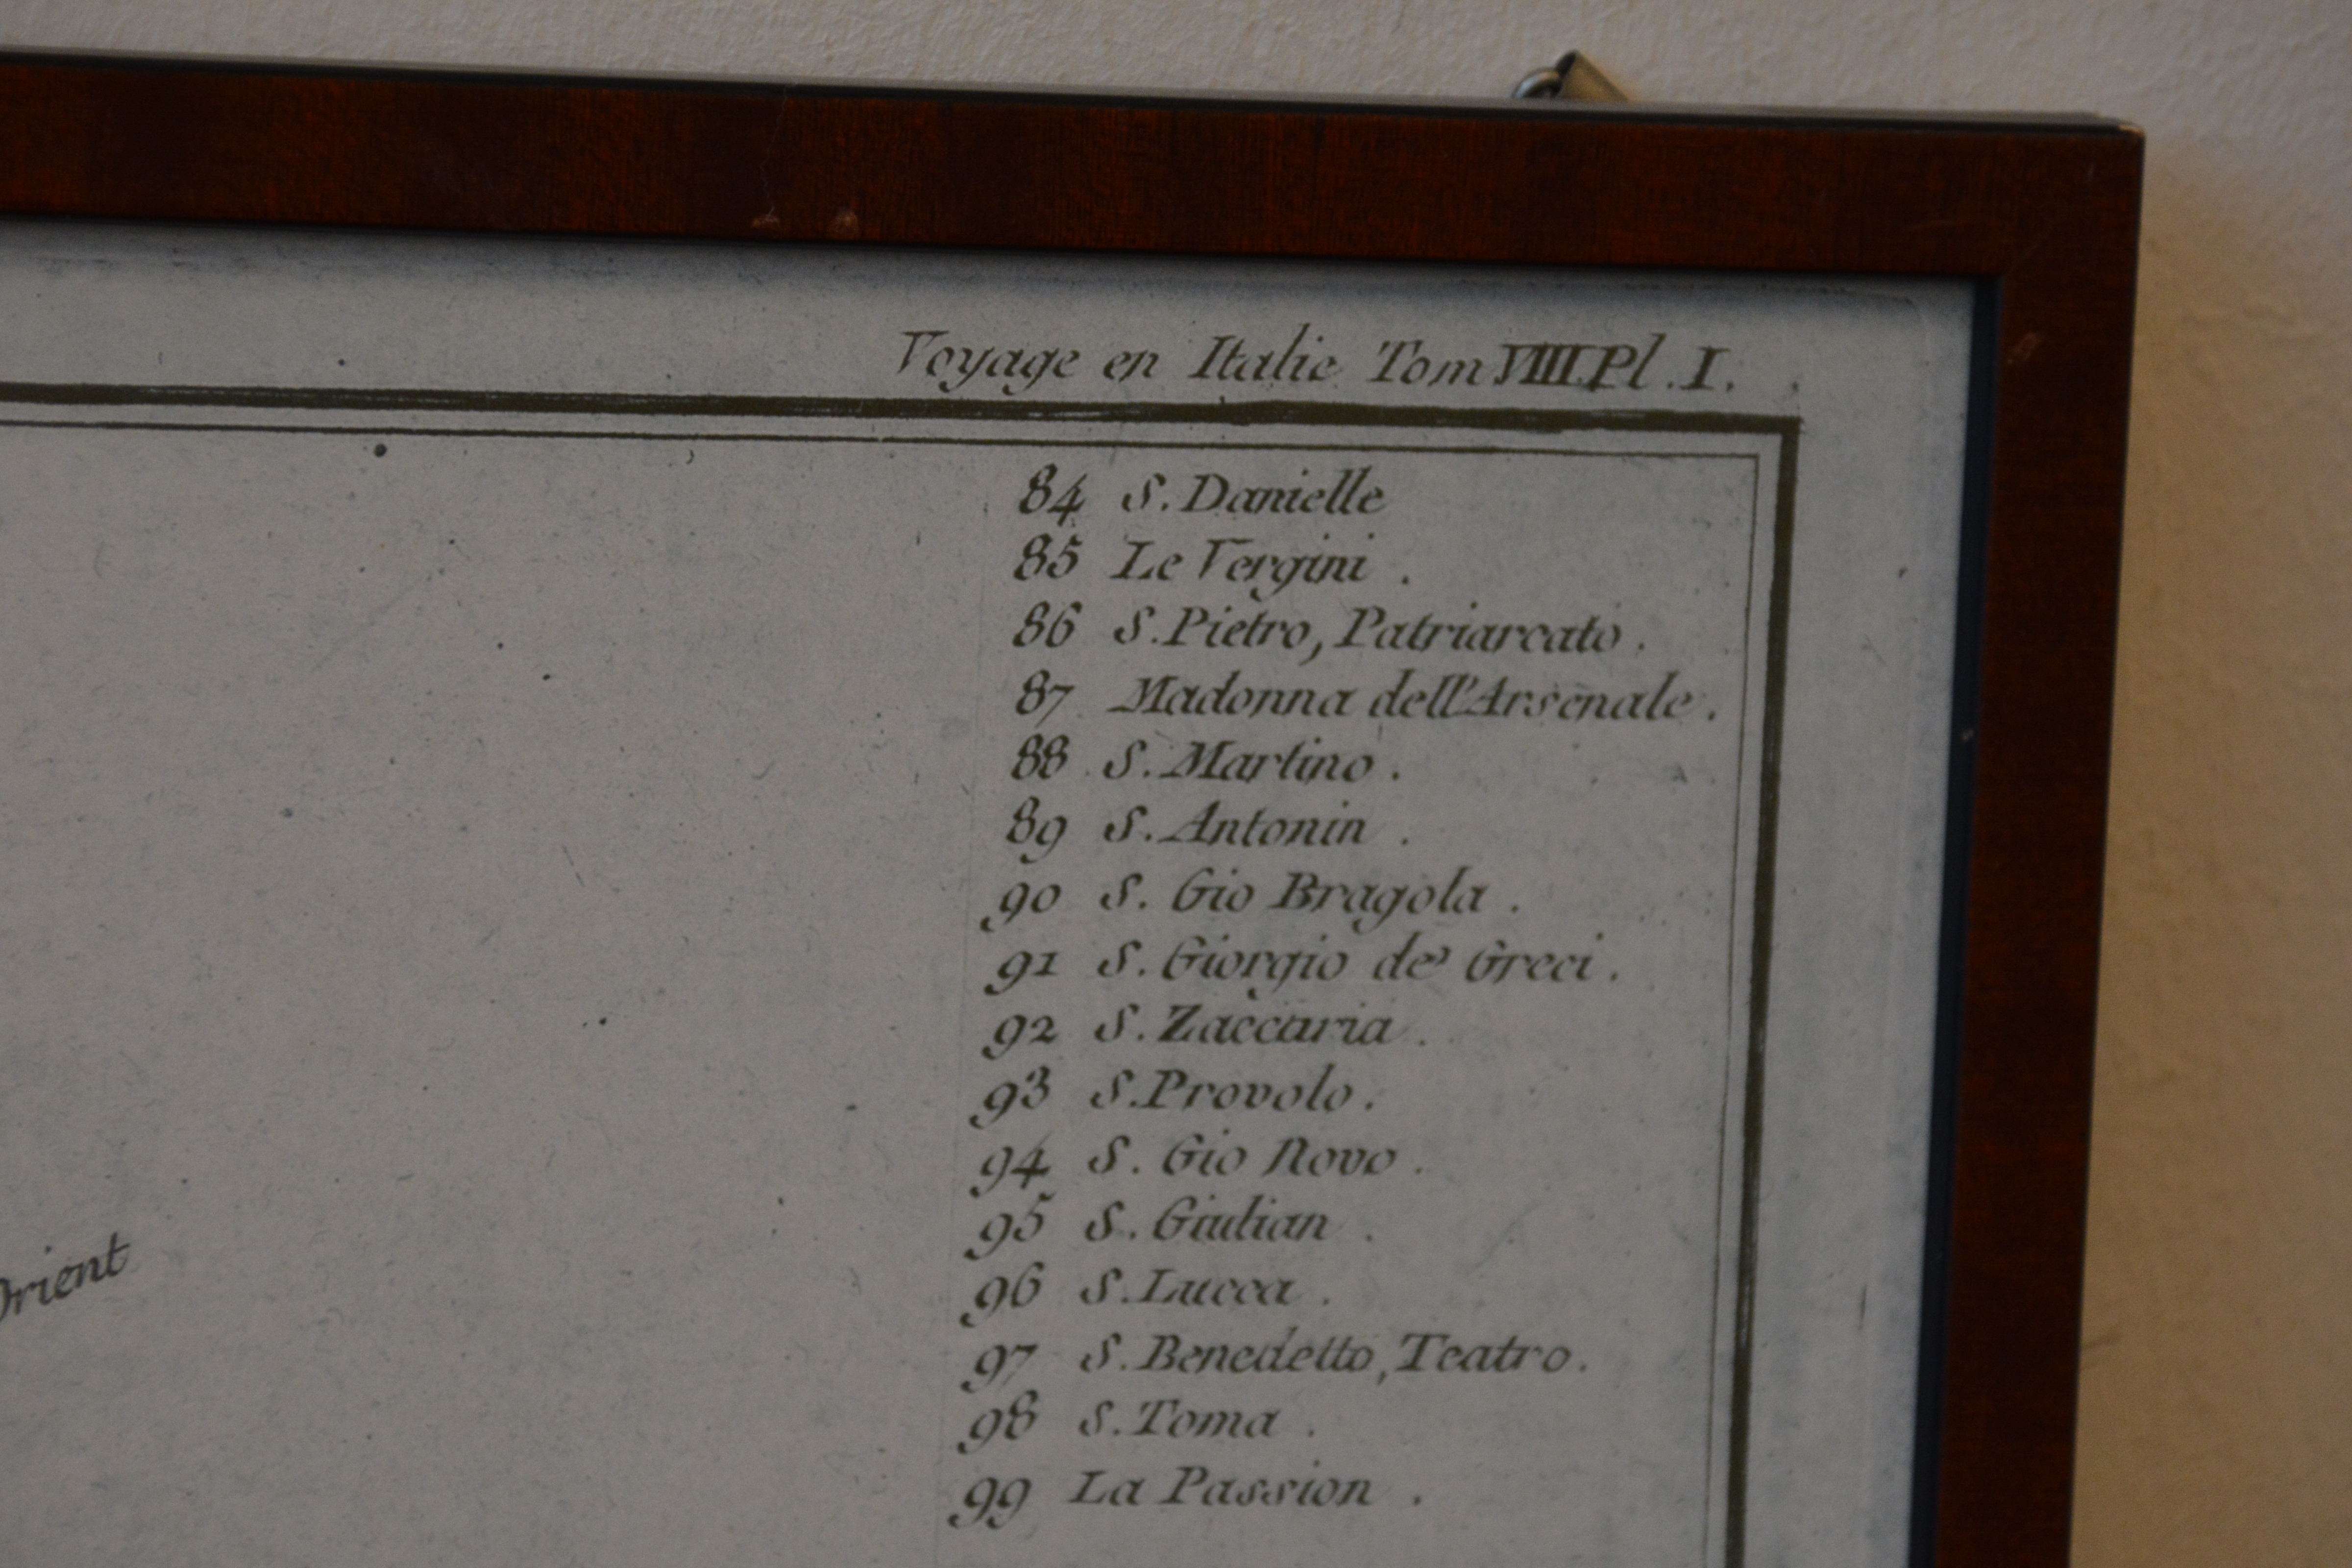 Voyage en Italie Tom VIIII. Pl. I.
84 S. Danielle
85 Le Vergini.
86 S. Pietro, Patriarcato.
87 Madonna dell'Arsenale.
88 S. Martino.
89 S. Antonin.
90 S. Gio Bragola.
91 S. Giorgio de' Greci.
92 S. Zaccaria.
93 S. Provolo.
94 S. Gio Novo.
95 S. Giulian.
96 S. Lucca.
97 S. Benedetto, Teatro.
98 S. Toma.
99 La Passion.
Orient